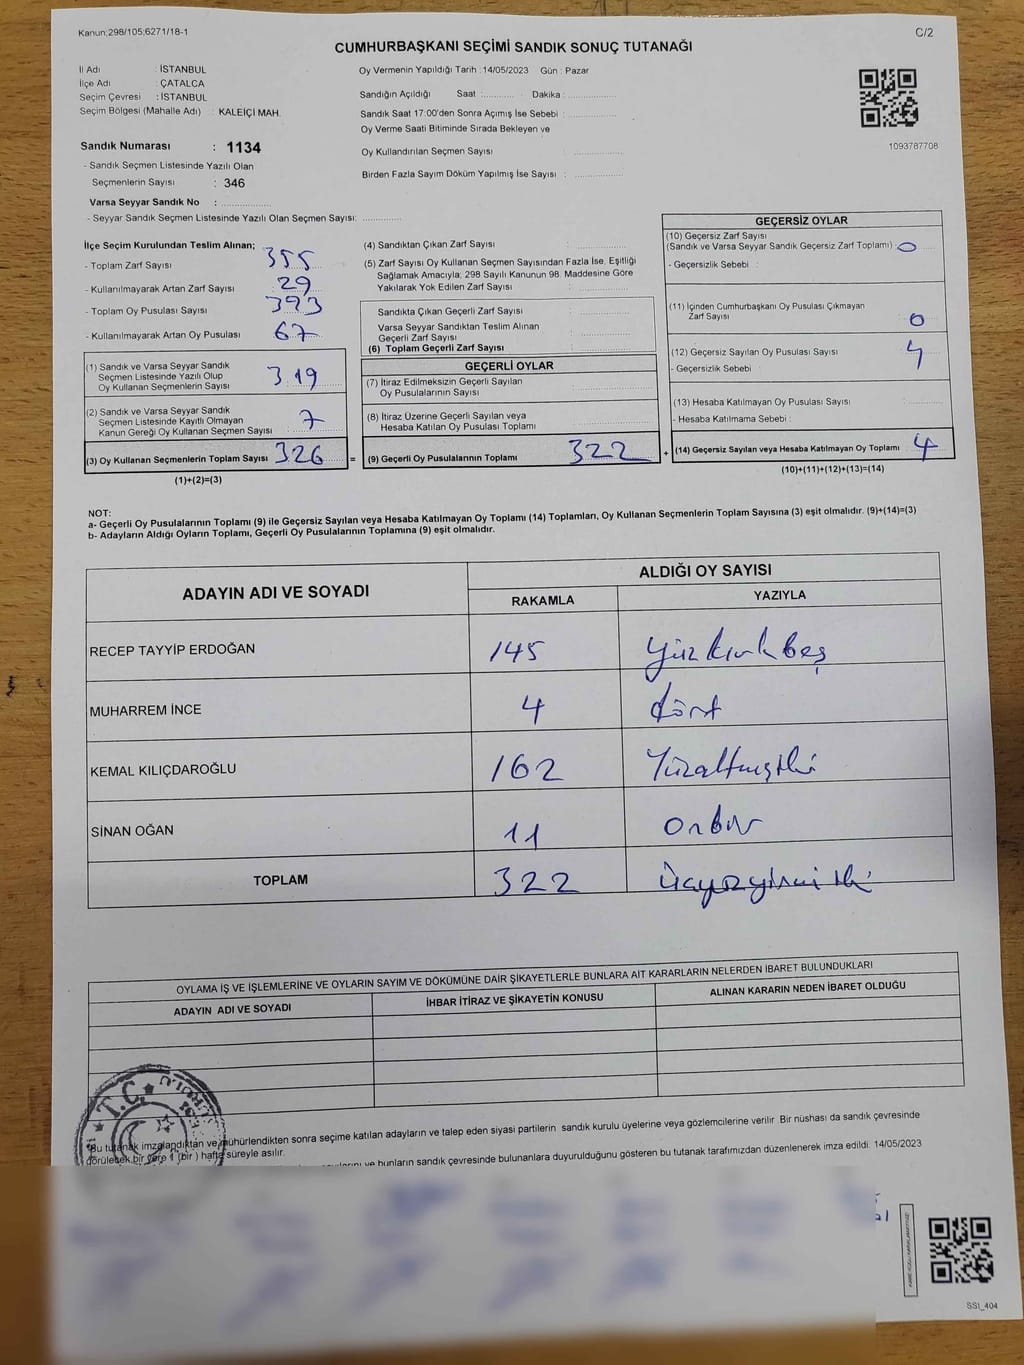 Kanun;298/105;6271/18-1
C/2
CUMHURBAŞKANI SEÇİMİ SANDIK SONUÇ TUTANAĞI
İl Adı : İSTANBUL
İlçe Adı : ÇATALCA
Seçim Çevresi : İSTANBUL
Seçim Bölgesi (Mahalle Adı) : KALEİÇİ MAH.
Sandık Numarası : 1134
- Sandık Seçmen Listesinde Yazılı Olan
Seçmenlerin Sayısı : 346
Varsa Seyyar Sandık No :
- Seyyar Sandık Seçmen Listesinde Yazılı Olan Seçmen Sayısı:
Oy Vermenin Yapıldığı Tarih :14/05/2023 Gün : Pazar
Sandığın Açıldığı Saat : Dakika :
Sandık Saat 17:00'den Sonra Açımış İse Sebebi :
Oy Verme Saati Bitiminde Sırada Bekleyen ve
Oy Kullandırılan Seçmen Sayısı :
Birden Fazla Sayım Döküm Yapılmış İse Sayısı :
1093787708
İlçe Seçim Kurulundan Teslim Alınan;
- Toplam Zarf Sayısı : 355
- Kullanılmayarak Artan Zarf Sayısı : 29
- Toplam Oy Pusulası Sayısı : 393
- Kullanılmayarak Artan Oy Pusulası : 67
(1) Sandık ve Varsa Seyyar Sandık
Seçmen Listesinde Yazılı Olup
Oy Kullanan Seçmenlerin Sayısı : 319
(2) Sandık ve Varsa Seyyar Sandık
Seçmen Listesinde Kayıtlı Olmayan
Kanun Gereği Oy Kullanan Seçmen Sayısı : 7
(3) Oy Kullanan Seçmenlerin Toplam Sayısı : 326 =
(1)+(2)=(3)
(4) Sandıktan Çıkan Zarf Sayısı :
(5) Zarf Sayısı Oy Kullanan Seçmen Sayısından Fazla İse, Eşitliği
Sağlamak Amacıyla; 298 Sayılı Kanunun 98. Maddesine Göre
Yakılarak Yok Edilen Zarf Sayısı :
Sandıkta Çıkan Geçerli Zarf Sayısı :
Varsa Seyyar Sandıktan Teslim Alınan
Geçerli Zarf Sayısı :
(6) Toplam Geçerli Zarf Sayısı :
GEÇERLİ OYLAR
(7) İtiraz Edilmeksizin Geçerli Sayılan
Oy Pusulalarının Sayısı :
(8) İtiraz Üzerine Geçerli Sayılan veya
Hesaba Katılan Oy Pusulası Toplamı :
(9) Geçerli Oy Pusulalarının Toplamı : 322 +
GEÇERSİZ OYLAR
(10) Geçersiz Zarf Sayısı
(Sandık ve Varsa Seyyar Sandık Geçersiz Zarf Toplamı) : 0
- Geçersizlik Sebebi :
(11) İçinden Cumhurbaşkanı Oy Pusulası Çıkmayan
Zarf Sayısı : 0
(12) Geçersiz Sayılan Oy Pusulası Sayısı : 4
- Geçersizlik Sebebi :
(13) Hesaba Katılmayan Oy Pusulası Sayısı :
- Hesaba Katılmama Sebebi :
(14) Geçersiz Sayılan veya Hesaba Katılmayan Oy Toplamı : 4
(10)+(11)+(12)+(13)=(14)
NOT:
a- Geçerli Oy Pusulalarının Toplamı (9) ile Geçersiz Sayılan veya Hesaba Katılmayan Oy Toplamı (14) Toplamları, Oy Kullanan Seçmenlerin Toplam Sayısına (3) eşit olmalıdır. (9)+(14)=(3)
b- Adayların Aldığı Oyların Toplamı, Geçerli Oy Pusulalarının Toplamına (9) eşit olmalıdır.
ADAYIN ADI VE SOYADI ALDIĞI OY SAYISI
RAKAMLA YAZIYLA
RECEP TAYYİP ERDOĞAN 145 Yüzkırkbeş
MUHARREM İNCE 4 dört
KEMAL KILIÇDAROĞLU 162 Yüzaltmışiki
SİNAN OĞAN 11 onbir
TOPLAM 322 üçyüzyirmi iki
OYLAMA İŞ VE İŞLEMLERİNE VE OYLARIN SAYIM VE DÖKÜMÜNE DAİR ŞİKAYETLERLE BUNLARA AİT KARARLARIN NELERDEN İBARET BULUNDUKLARI
ADAYIN ADI VE SOYADI İHBAR İTİRAZ VE ŞİKAYETİN KONUSU ALINAN KARARIN NEDEN İBARET OLDUĞU
T.C.
Bu tutanak imzalandıktan ve mühürlendikten sonra seçime katılan adayların ve talep eden siyasi partilerin sandık kurulu üyelerine veya gözlemcilerine verilir. Bir nüshası da sandık çevresinde
görülecek bir yere 1 (bir) hafta süreyle asılır.
ve bunların sandık çevresinde bulunanlara duyurulduğunu gösteren bu tutanak tarafımızdan düzenlenerek imza edildi. 14/05/2023
SSI_404